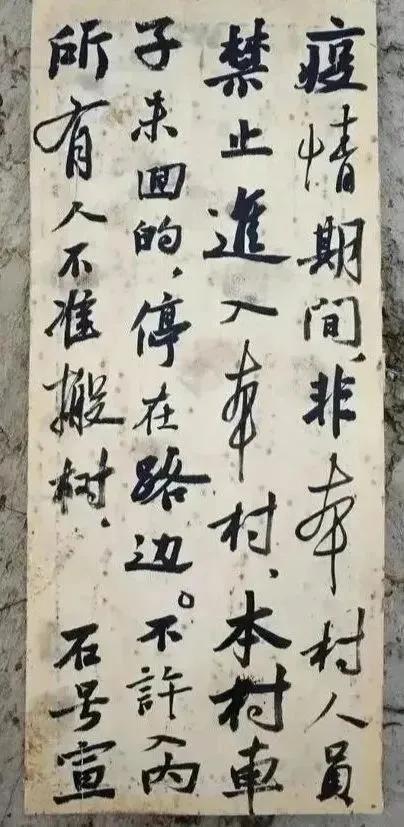 疫情期间,非本村人员
禁止進入本村、本村車
子未回的,停在路边。不許入内
所有人不准搬树.石号宣